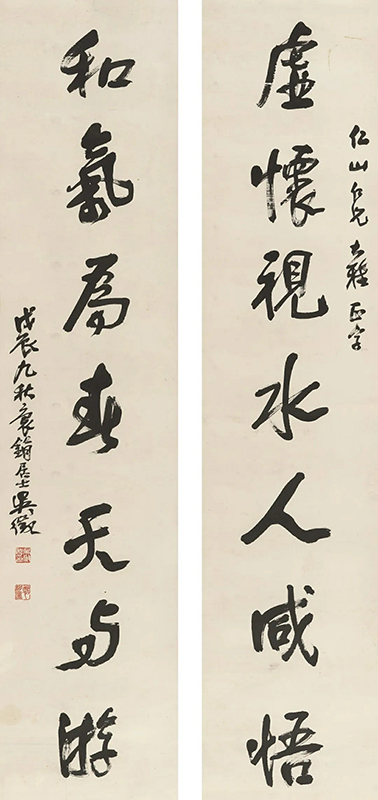 仁山仁兄大雅正字
虛懷視水人咸悟
和氣爲春天与游
戊辰九秋袌鋗居士吳徵